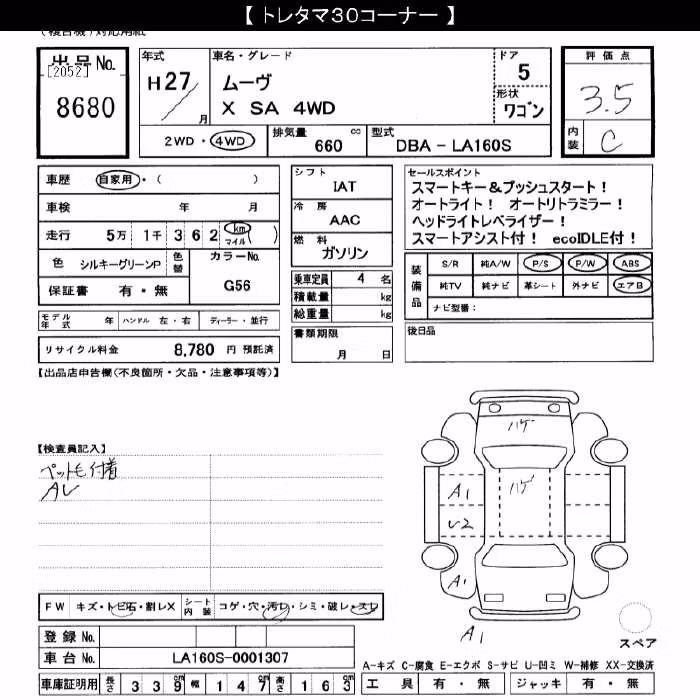 【 トレタマ30コーナー 】
(複合機)対応用紙
出品No.
[2052]
8680
年式
H27/ 月
車名・グレード
ムーヴ
X SA 4WD
ドア
5
形状
ワゴン
評価点
3.5
内装
C
2WD・4WD
排気量 660 cc
型式 DBA - LA160S
車歴 自家用・( )
車検 年 月
走行 5万 1千 3 6 2 km マイル ( )
色 シルキーグリーンP 色替 カラーNo.
G56
保証書 有・無
モデル年式 年 ハンドル 左・右 ディーラー・並行
リサイクル料金 8,780 円 預託済
シフト
IAT
冷房
AAC
燃料
ガソリン
乗車定員 4 名
積載量 kg
総重量 kg
書類期限
月 日
セールスポイント
スマートキー&プッシュスタート!
オートライト! オートリトラミラー!
ヘッドライトレベライザー!
スマートアシスト付! ecoIDLE付!
装備品
S/R 純A/W P/S P/W ABS
純TV 純ナビ 革シート 外ナビ エアB
ナビ型番:
後日品
【出品店申告欄(不良箇所・欠品・注意事項等)】
【検査員記入】
ペット毛付着
AL
ハゲ
ハゲ
A1
U2
A1
A1
スペア
FW キズ・トビ石・割レX シート内装 コゲ・穴・汚レ・シミ・破レ・スレ
登録No.
車台No. LA160S-0001307
車庫証明用 長さ 3 3 9 cm 幅 1 4 7 cm 高さ 1 6 3 cm
A-キズ C-腐食 E-エクボ S-サビ U-凹ミ W-補修 XX-交換済
工具 有・無 ジャッキ 有・無